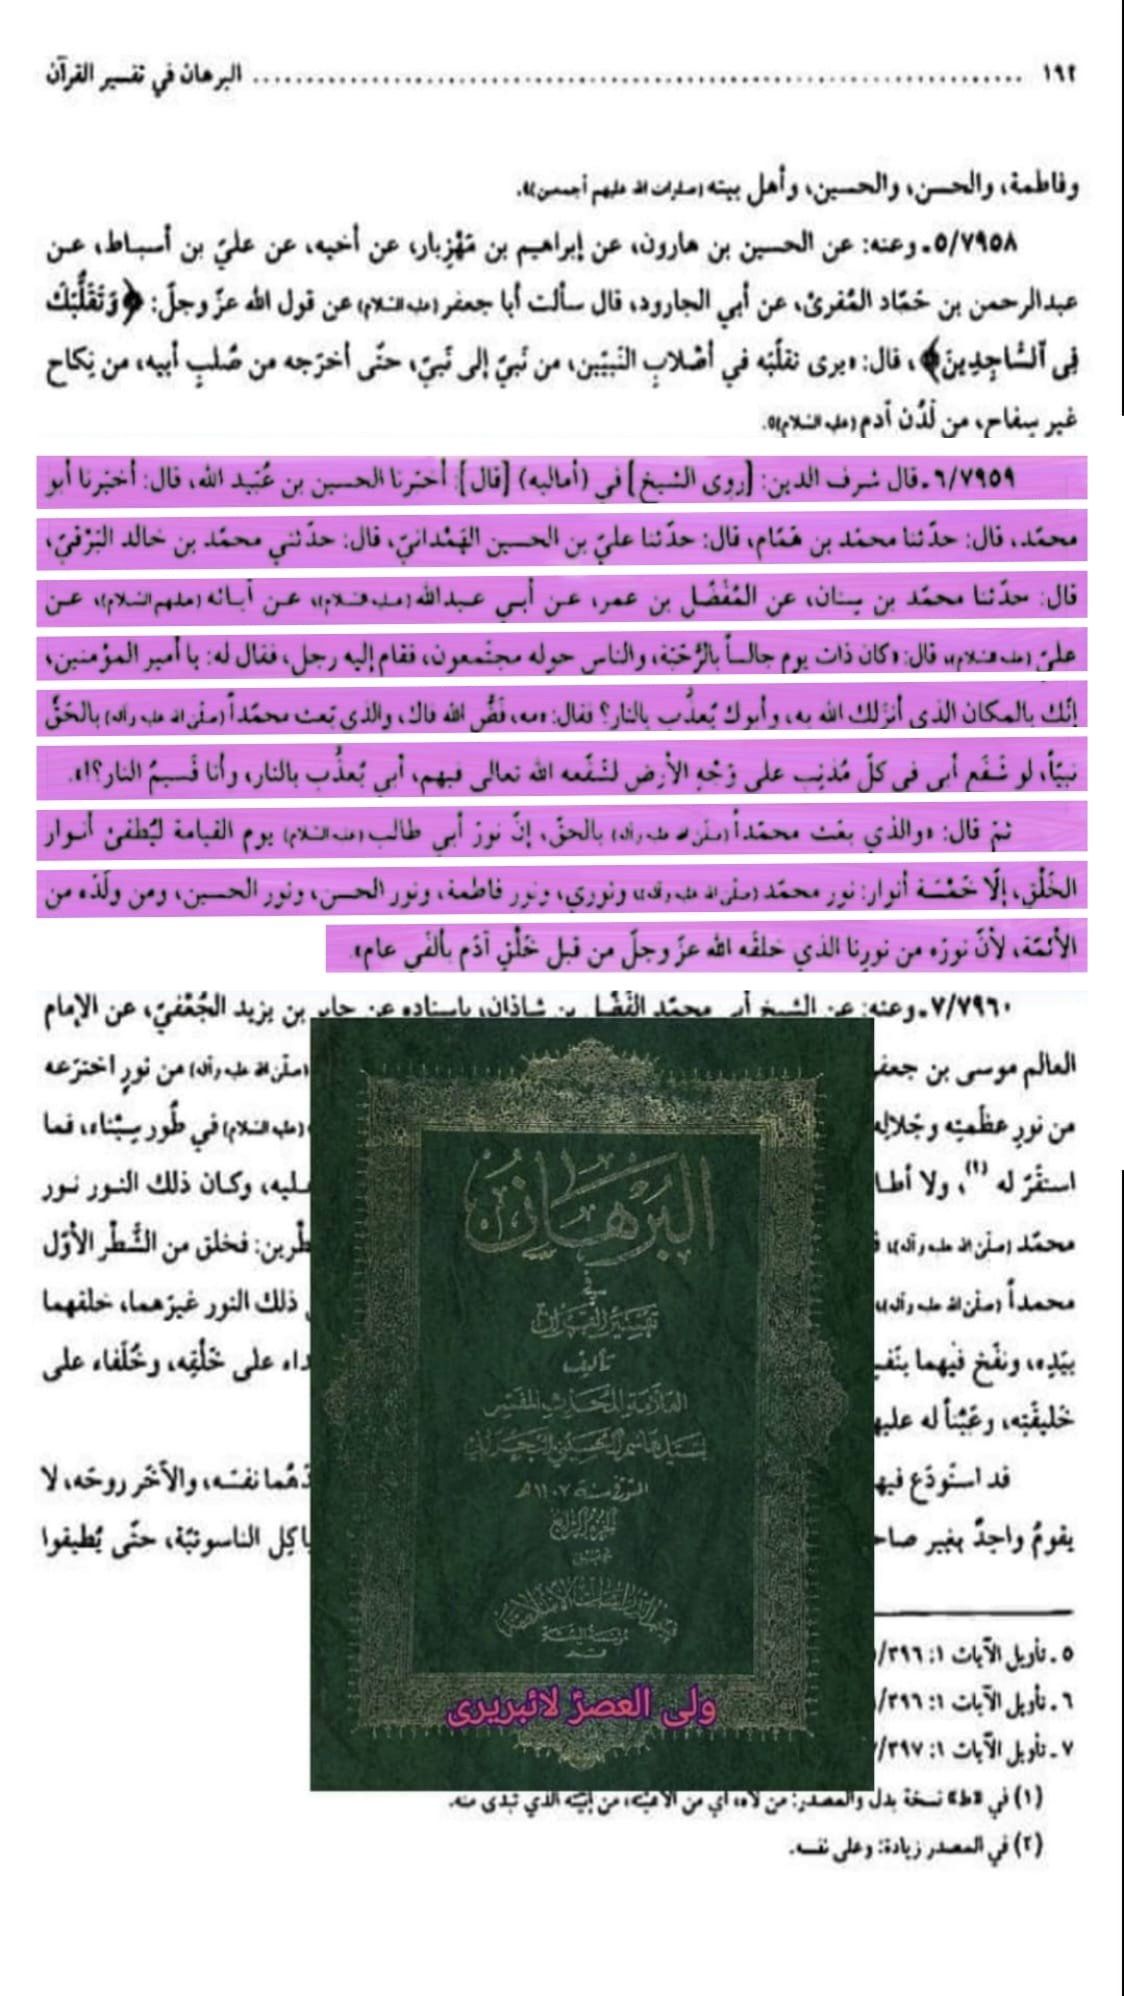 ١٩٢ ........ البرهان في تفسير القرآن
وفاطمة، والحسن، والحسين، وأهل بيته (صلوات الله عليهم أجمعين)».
٥/٧٩٥٨ ـ وعنه: عن الحسين بن هارون، عن إبراهيم بن مَهْزِيار، عن أخيه، عن عليّ بن أسباط، عن
عبدالرحمن بن حَمّاد المُقرئ، عن أبي الجارود، قال سألت أبا جعفر (عليه السّلام) عن قول الله عزّ وجلّ: ﴿وَتَقَلُّبَكَ
فِى ٱلسَّاجِدِينَ﴾، قال: «يرى تقلّبَه في أصْلابِ النَبيّين، من نَبيّ إلى نَبيّ، حتّى أخرَجه من صُلبِ أبيه، من نِكاح
غير سِفاح، من لَدُن آدم (عليه السّلام)».
٦/٧٩٥٩ ـ قال شرف الدين: [روى الشيخ] في (أماليه) [قال]: أخبَرنا الحسين بن عُبَيد الله، قال: أخبَرنا أبو
محمّد، قال: حدّثنا محمّد بن هَمّام، قال: حدّثنا عليّ بن الحسين الهَمْدانيّ، قال: حدّثني محمّد بن خالد البَرْقيّ،
قال: حدّثنا محمّد بن سِنان، عن المُفَضّل بن عمر، عن أبي عبدالله (عليه السّلام)، عن آبائه (عليهم السّلام)، عن
عليّ (عليه السّلام)، قال: «كان ذات يوم جالساً بالرُّحْبَة، والناس حوله مجتَمعون، فقام إليه رجل، فقال له: يا أمير المؤمنين،
إنّك بالمكان الذي أنزَلك الله به، وأبوك يُعذَّب بالنار؟ فقال: «مه، فَضَّ الله فاك، والذي بَعث محمّداً (صلّى الله عليه وآله) بالحَقّ
نبيّاً، لو شَفَع أبي في كلّ مُذنِب على وَجْهِ الأرض لشَفّعه الله تعالى فيهم، أبي يُعذَّب بالنار، وأنا قَسيمُ النار؟!».
ثمّ قال: «والذي بعَث محمّداً (صلّى الله عليه وآله) بالحقّ، إنّ نورَ أبي طالب (عليه السّلام) يوم القيامة ليُطفئ أنوار
الخَلْقِ، إلّا خَمْسَة أنوار: نور محمّد (صلّى الله عليه وآله)، ونوري، ونور فاطمة، ونور الحسن، ونور الحسين، ومن ولَدَه من
الأئمّة، لأنّ نورَه من نورِنا الذي خلقَه الله عزّ وجلّ من قبل خَلْقِ آدَم بألفَي عام».
٧/٧٩٦٠ ـ وعنه: عن الشيخ أبي محمّد الفَضْل بن شاذان، بإسناده عن جابر بن يزيد الجُعْفيّ، عن الإمام
العالم موسى بن جعفر (صلّى الله عليه وآله) من نورٍ اخترَعه
من نورِ عظَمتِه وجَلالِه (عليه السّلام) في طُور سِيْناء، فما
استقَرّ له (١)، ولا أطا عليه، وكان ذلك النور نور
محمّد (صلّى الله عليه وآله)، شَطْرين: فخلق من الشَّطْر الأوّل
محمداً (صلّى الله عليه وآله)، ذلك النور غيرَهما، خلقهما
بيَدِه، ونفَخ فيهما بنَفسِ على خَلْقِه، وخُلَفاء على
خَليقَتِه، وعَيْناً له عليهم
قد استَودَع فيه نفسَه، والآخَر روحَه، لا
يقومُ واحِدٌ بغير صاحبه الناسوتيّة، حتّى يُطيقوا
البُرهان
في
تفسير القرآن
تأليف
العلّامة المحدّث المفسّر
السيّد هاشم الحسيني البحراني
المتوفى سنة ١١٠٧ هـ
الجزء الرابع
تحقيق
قسم الدراسات الإسلامية
مؤسسة البعثة
قم
ولی العصرؑ لائبریری
٥ ـ تأويل الآيات ١: ٣٩٦/
٦ ـ تأويل الآيات ١: ٣٩٦/
٧ ـ تأويل الآيات ١: ٣٩٧/
(١) في «ط» نسخة بدل والمصدر: من لاه، أي من الاهيّته، من إنّيته الذي تبدّى منه.
(٢) في المصدر زيادة: وعلى نفسه.